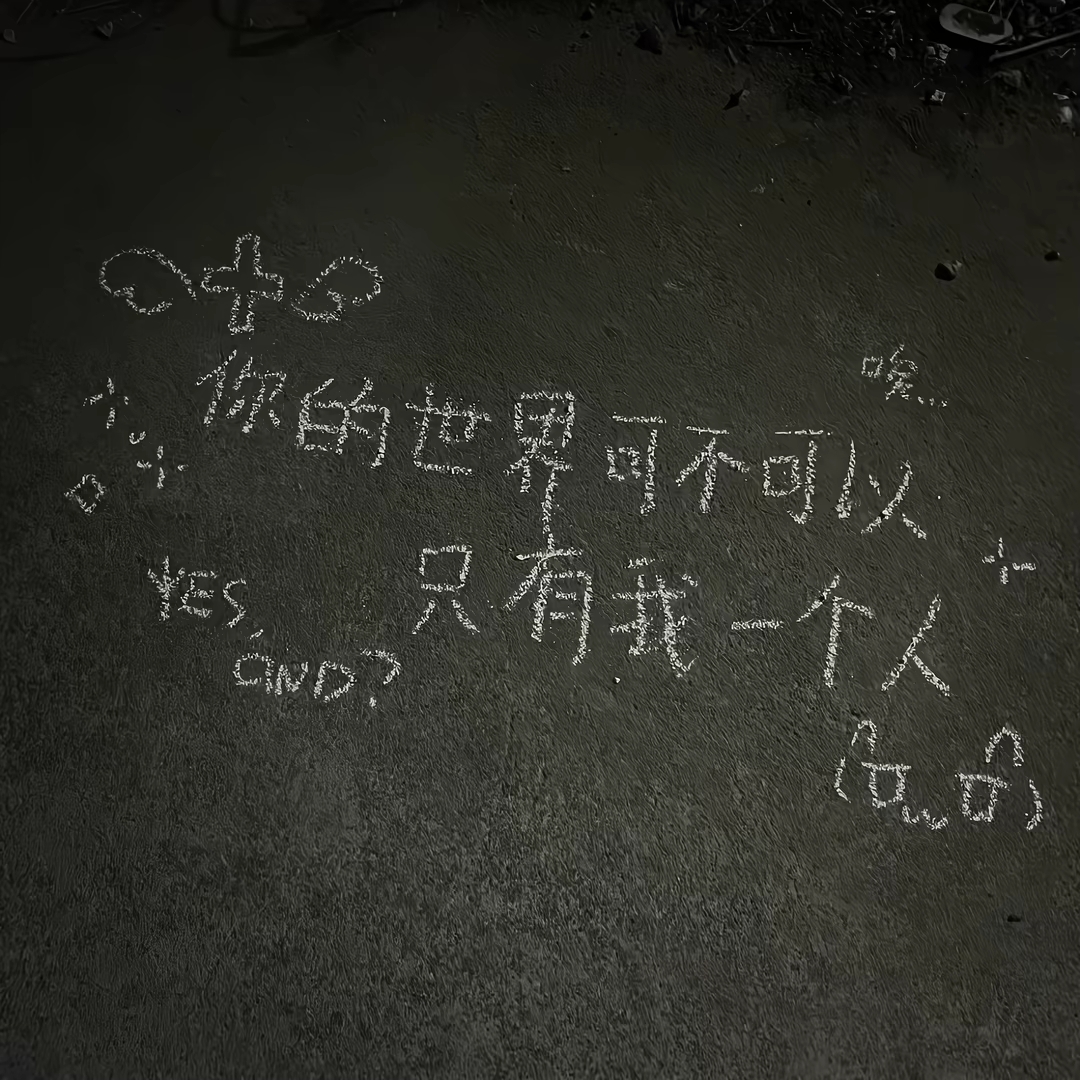 你的世界可不可以
只有我一个人
唉...
YES,
AND?